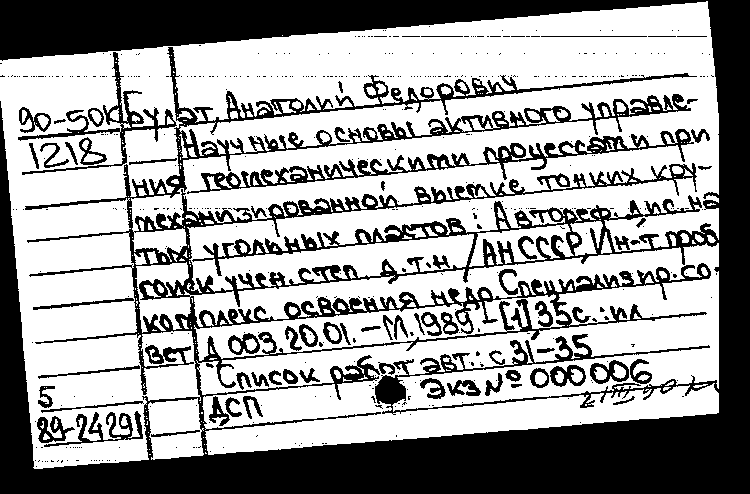 90-50К Булат, Анатолий Федорович
1218 Научные основы активного управле-
ния геомеханическими процессами при
механизированной выемке тонких кру-
тых угольных пластов : Автореф. дис. на
соиск. учен. степ. д.т.н. / АН СССР, Ин-т проб
комплекс. освоения недр. Специализир. со-
вет Д 003.20.01. - М., 1989. - [1] 35 с. : ил
Список работ авт.: с. 31-35
5 Экз № 000006
89-24291 ДСП